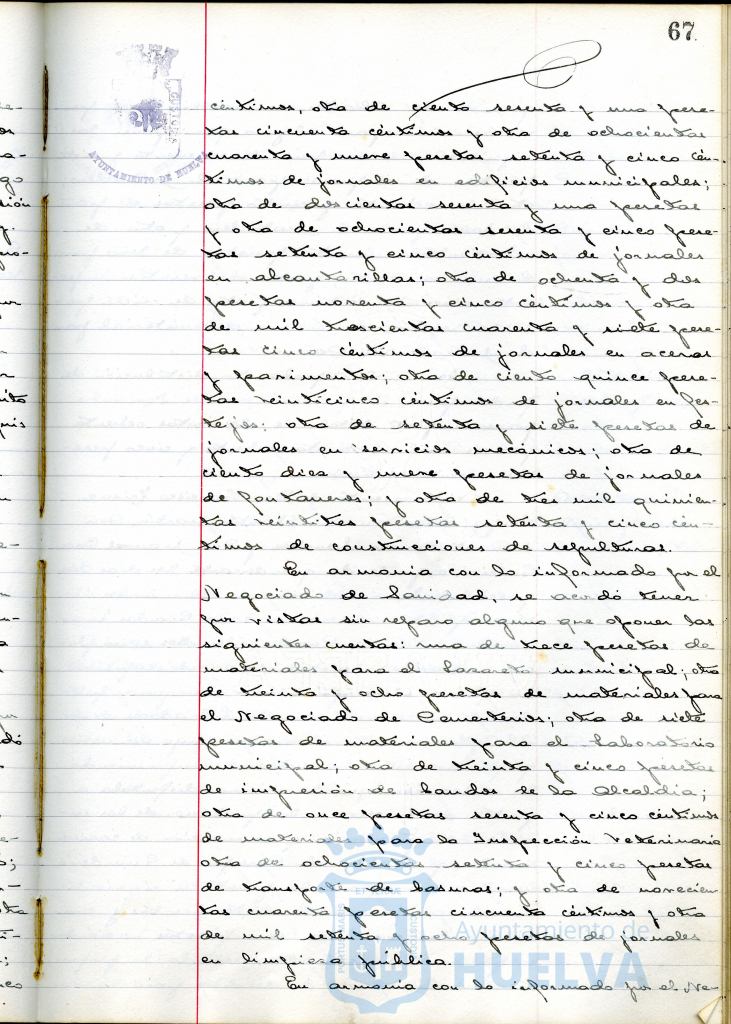 67.
AYUNTAMIENTO DE HUELVA
céntimos, otra de ciento sesenta y una pese-
tas cincuenta céntimos y otra de ochocientas
cuarenta y nueve pesetas setenta y cinco cén-
timos de jornales en edificios municipales;
otra de doscientas sesenta y una pesetas
y otra de ochocientas sesenta y cinco pese-
tas setenta y cinco céntimos de jornales
en alcantarillas; otra de ochenta y dos
pesetas noventa y cinco céntimos y otra
de mil trescientas cuarenta y siete pese-
tas cinco céntimos de jornales en aceras
y pavimentos; otra de ciento quince pese-
tas veinticinco céntimos de jornales en fes-
tejos; otra de setenta y siete pesetas de
jornales en servicios mecánicos; otra de
ciento diez y nueve pesetas de jornales
de fontaneros; y otra de tres mil quinien-
tas veintitres pesetas setenta y cinco cén-
timos de construcciones de sepulturas.
En armonia con lo informado por el
Negociado de Sanidad, se acordó tener
por vistas sin reparo alguno que oponer las
siguientes cuentas: una de trece pesetas de
materiales para el Lazareto municipal; otra
de treinta y ocho pesetas de materiales para
el Negociado de Cementerios; otra de siete
pesetas de materiales para el Laboratorio
municipal; otra de treinta y cinco pesetas
de impresión de bandos de la Alcaldia;
otra de once pesetas sesenta y cinco céntimos
de materiales para la Inspección Veterinaria
otra de ochocientas setenta y cinco pesetas
de transporte de basuras; y otra de novecien-
tas cuarenta pesetas cincuenta céntimos y otra
de mil setenta y ocho pesetas de jornales
en limpieza pública.
En armonia con lo informado por el Ne-
Ayuntamiento de
HUELVA